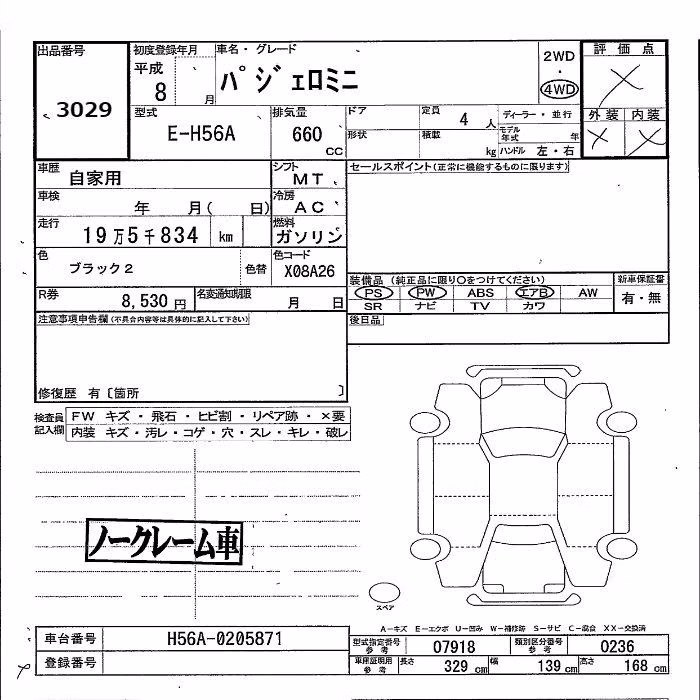 出品番号
3029
初度登録年月
平成
8 月
車名・グレード
パジェロミニ
2WD
・
4WD
評価点
外装 内装
型式
E-H56A
排気量
660 cc
ドア
形状
定員
4 人
積載
kg
ディーラー・並行
モデル年式 年
ハンドル 左・右
車歴
自家用
シフト
MT
車検
年 月( 日)
冷房
AC
走行
19万5千834 km
燃料
ガソリン
色
ブラック2
色替
色コード
X08A26
R券
8,530 円
名変通知期限
月 日
セールスポイント(正常に機能するものに限ります)
装備品 (純正品に限り○をつけてください)
PS PW ABS エアB AW
SR ナビ TV カワ
新車保証書
有・無
後日品
注意事項申告欄(不具合内容等は具体的に記入して下さい)
修復歴 有〔箇所 〕
検査員記入欄
FW キズ・飛石・ヒビ割・リペア跡・×要
内装 キズ・汚レ・コゲ・穴・スレ・キレ・破レ
ノークレーム車
スペア
A-キズ E-エクボ U-凹み W-補修跡 S-サビ C-腐食 XX-交換済
車台番号
H56A-0205871
登録番号
型式指定番号 参考
07918
類別区分番号 参考
0236
車庫証明用 参考
長さ 329 cm
幅 139 cm
高さ 168 cm